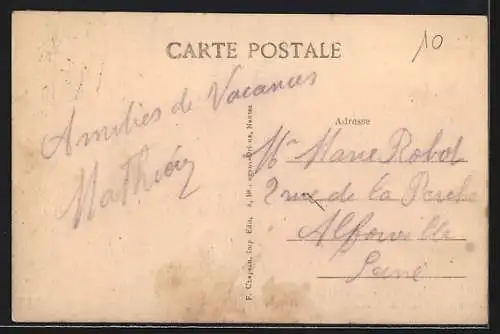 CARTE POSTALE
10
Amitiés de Vacances
Mathieu
Adresse
Mr Marie Robot
2 rue de la Perche
Alforville
Seine
F. Chapeau, Imp. Edit., Nantes